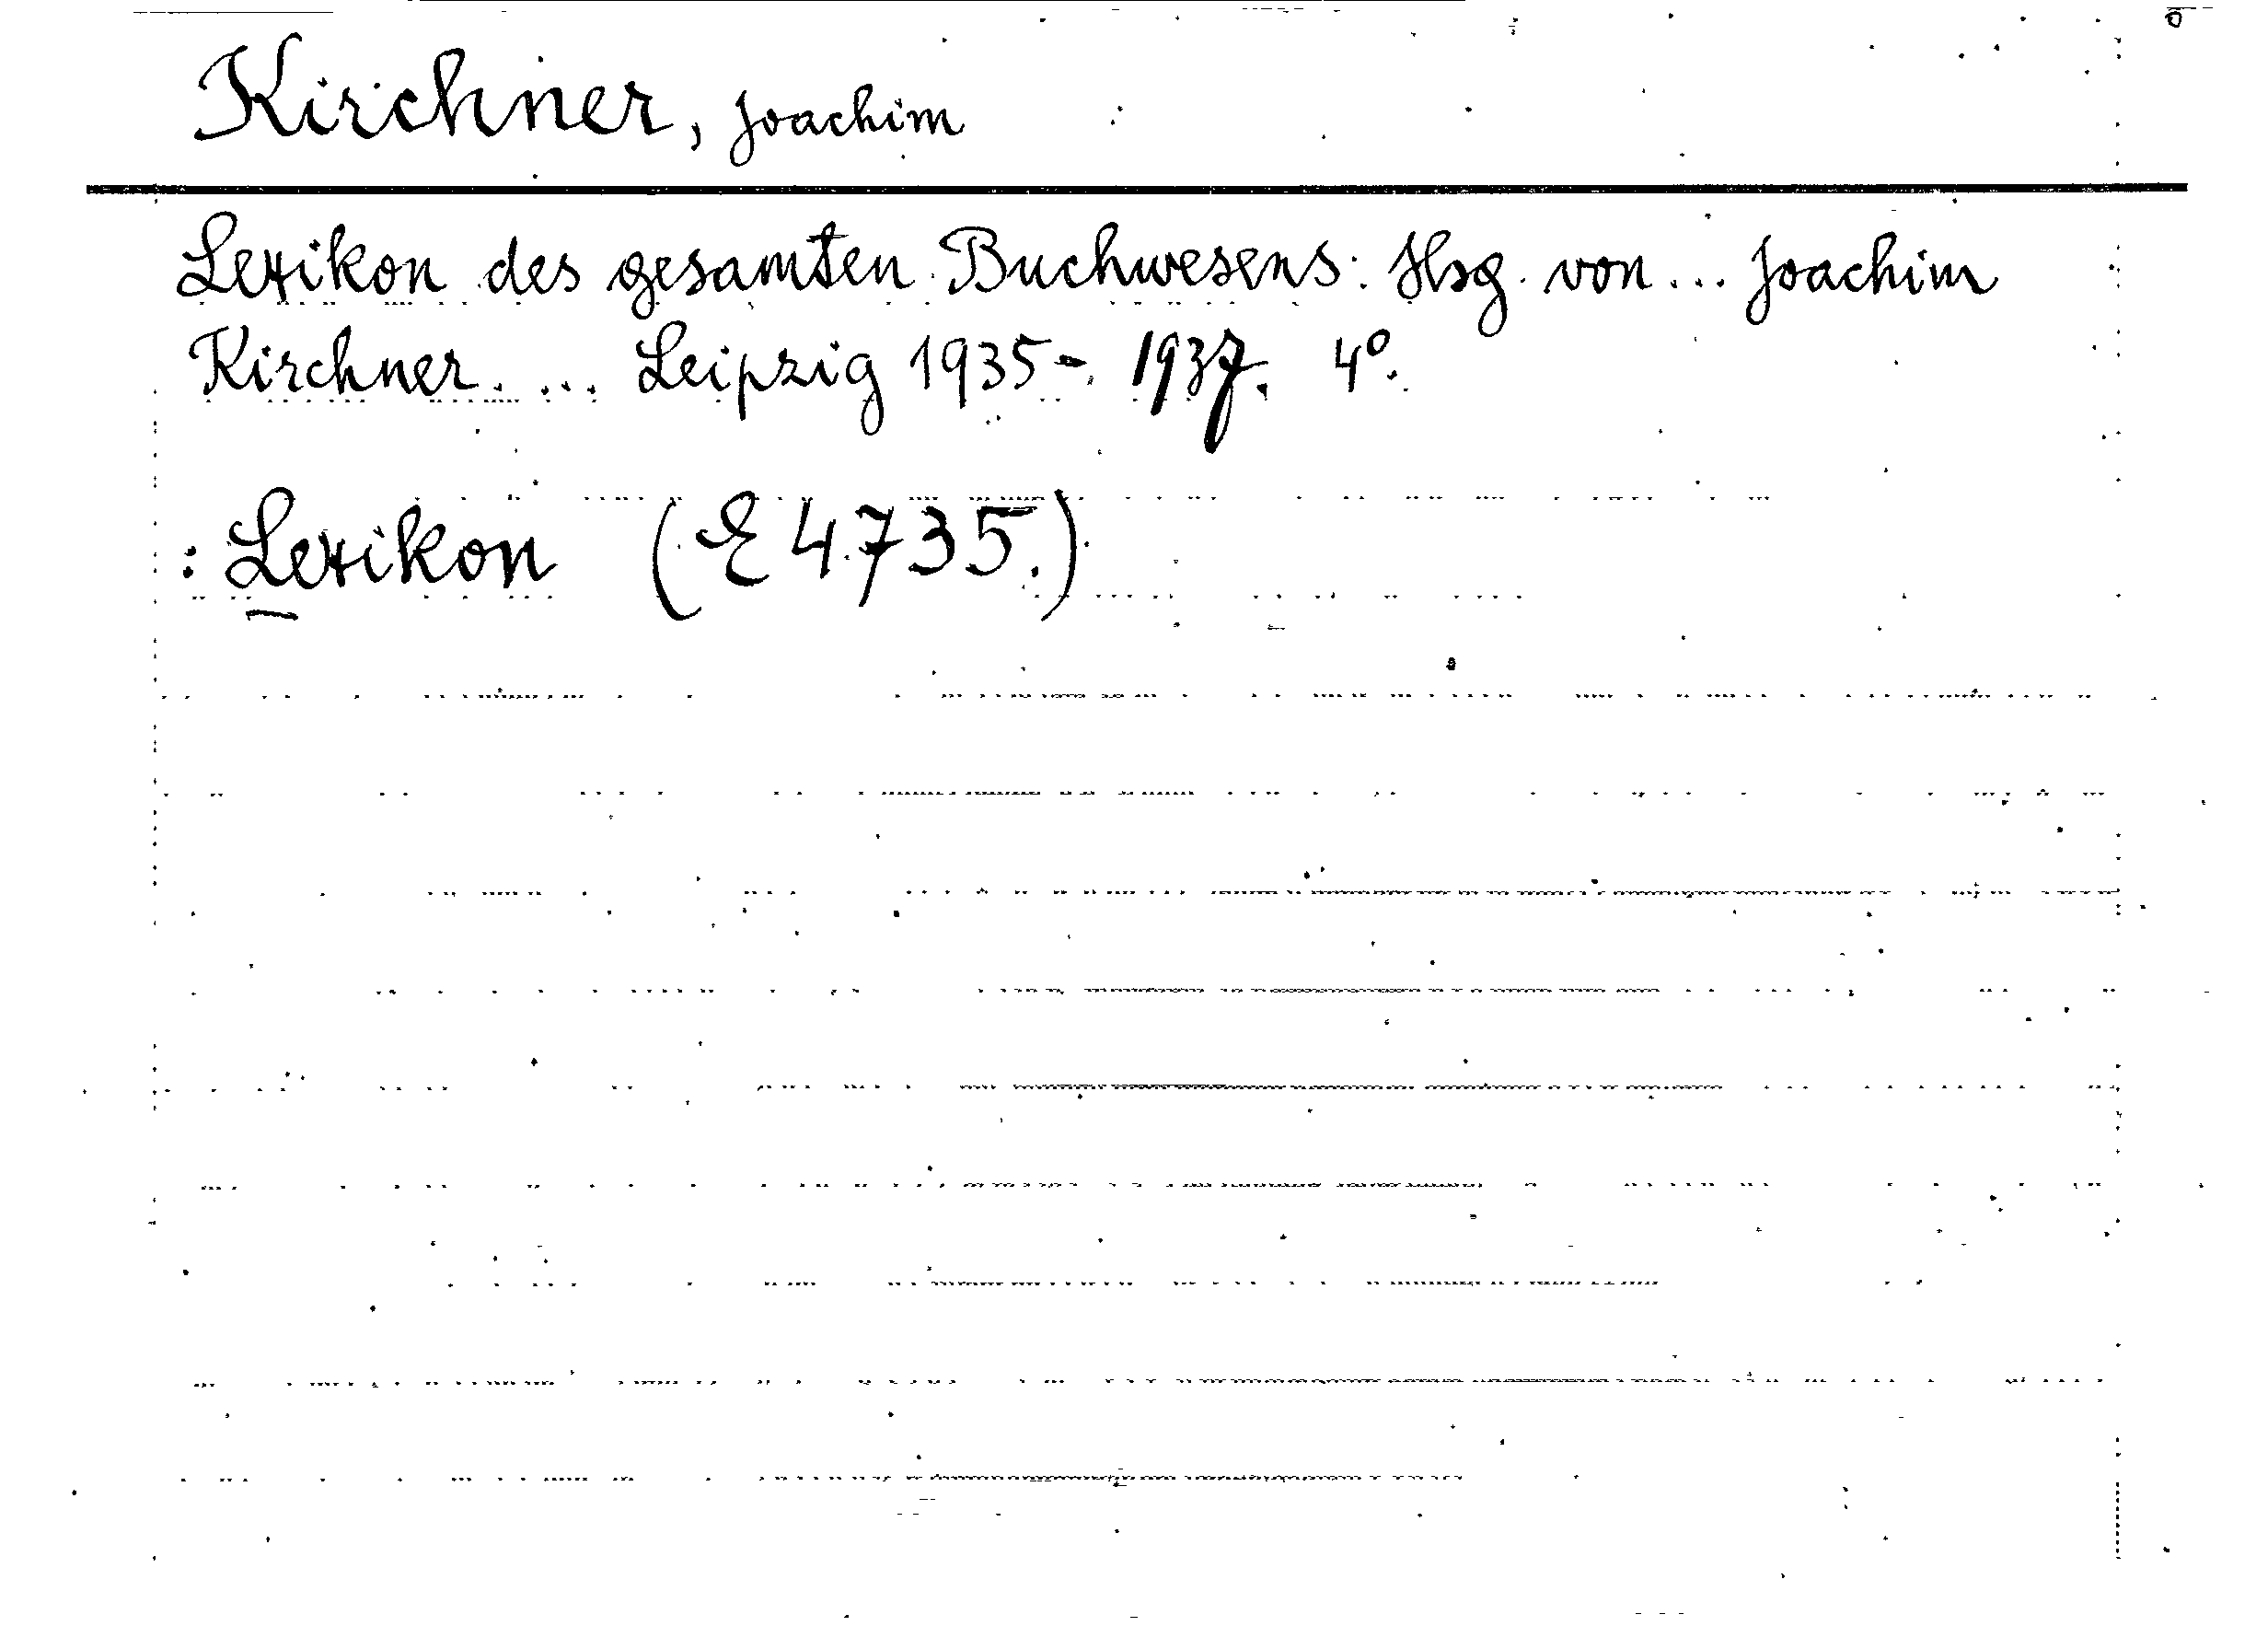 Kirchner, Joachim
Lexikon des gesamten Buchwesens: Hsg. von... Joachim
Kirchner. ... Leipzig 1935-1937. 4°.
: Lexikon (E 4735.)